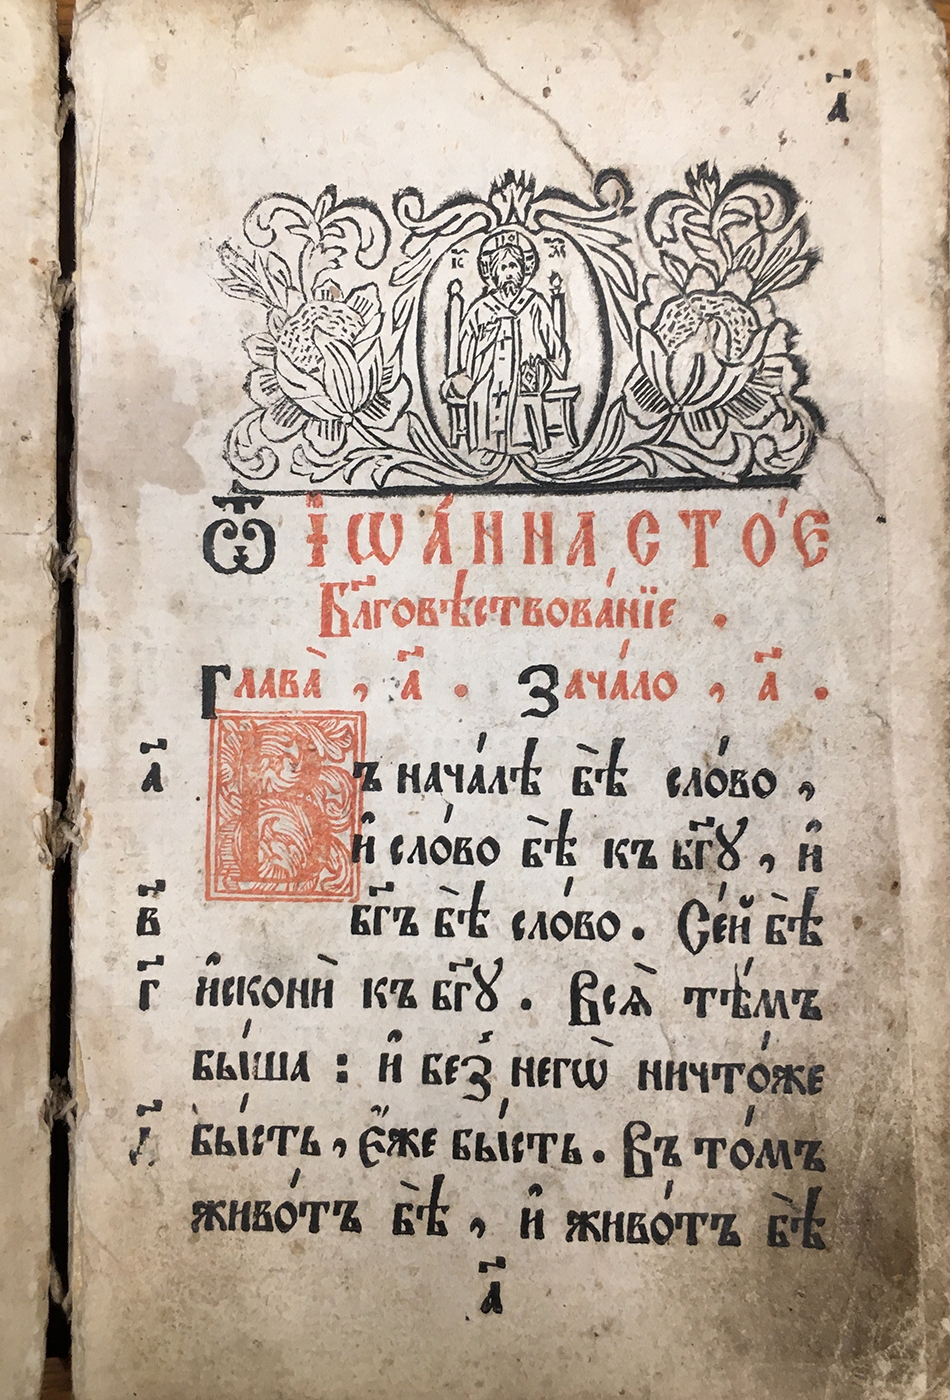 а҃
І҃С Х҃С
Ѿ І҆ѡа́нна ст҃о́е
Бл҃говѣствова́нїе .
Глава̀ , а҃ . Зача́ло , а҃ .
а҃ Въ нача́лѣ бѣ̀ сло́во ,
и҆ сло́во бѣ̀ къ бг҃ꙋ , и҆
в҃ бг҃ъ бѣ̀ сло́во . Се́й бѣ̀
г҃ и҆сконѝ къ бг҃ꙋ . Всѧ̀ тѣ́мъ
бы́ша : и҆ беꙁ̾ негѡ̀ ничто́же
д҃ бы́сть , є҆́же бы́сть . Въ то́мъ
живо́тъ бѣ̀ , и҆ живо́тъ бѣ̀
а҃